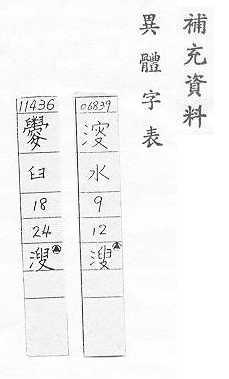 補充資料
異體字表
06839
水
9
12
溲
11436
臼
18
24
溲